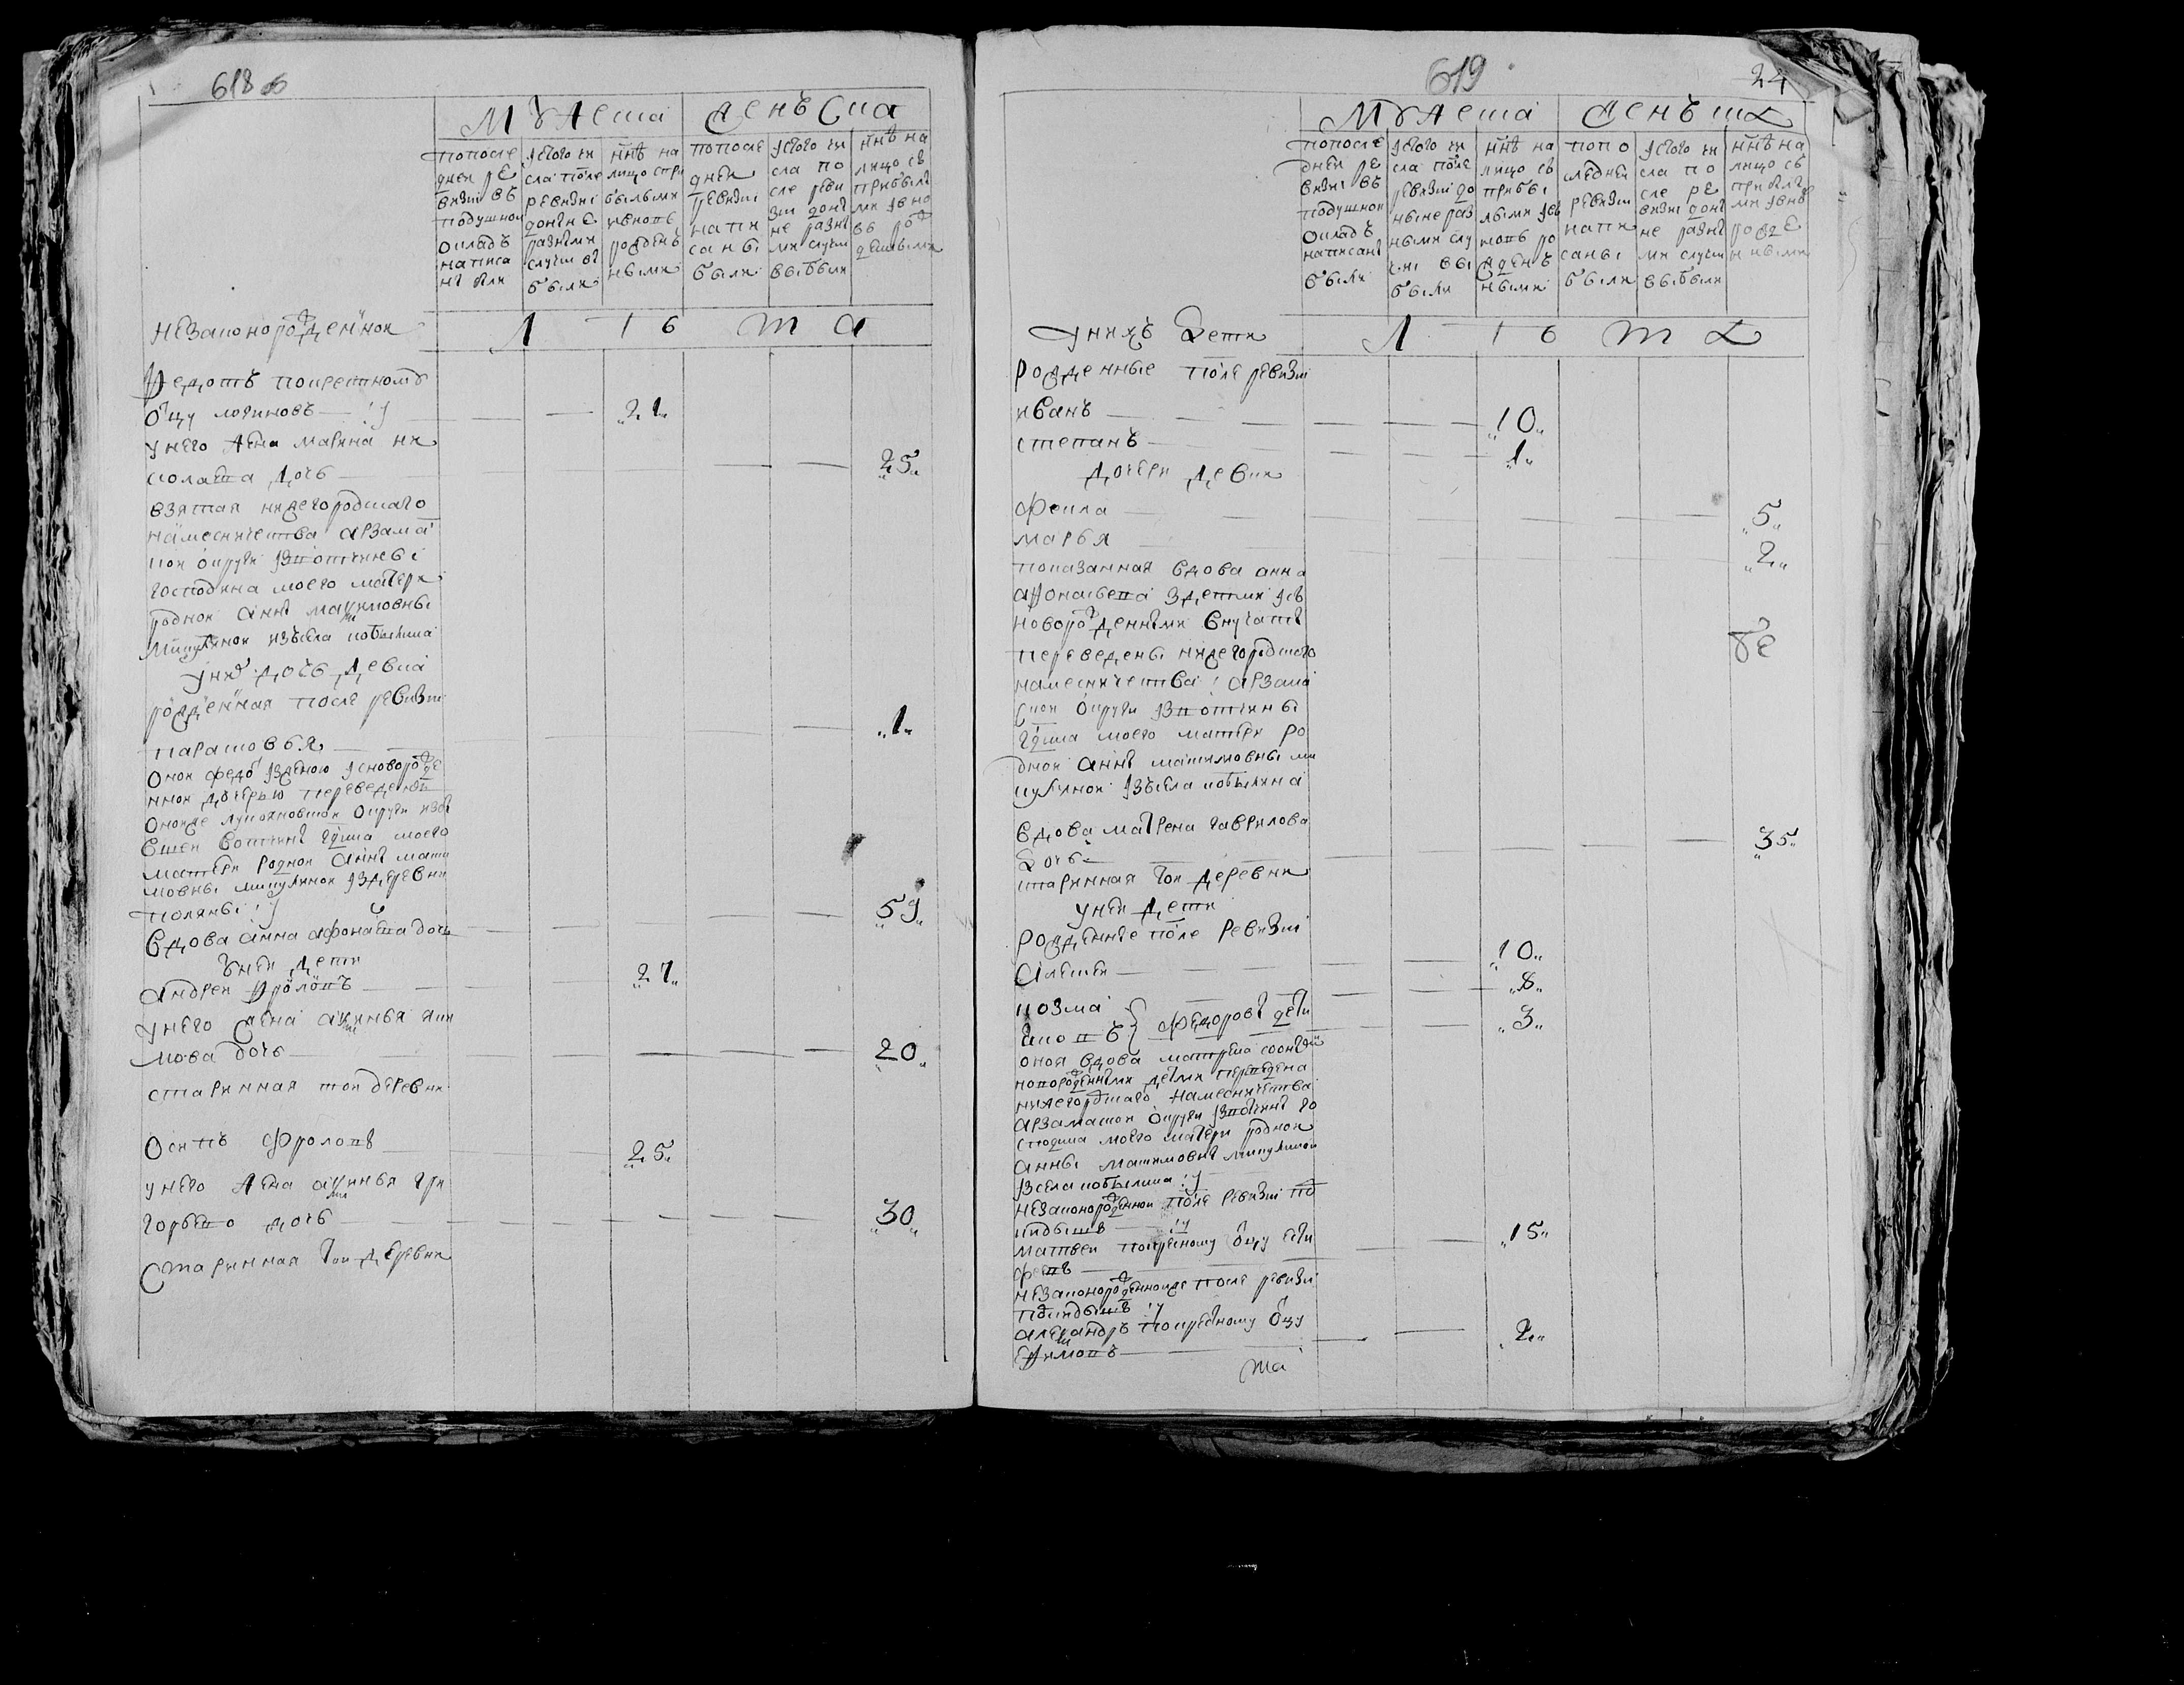 618 об
Мужеска
Женъска
попосле
дней ре
визиі въ
подушной
окладъ
написа
ны были
изтого чи
сла после
ревизиі
разными
случаи вы
были
нне на
лицо спри
былыми
рожденъ
ными
попосле
дней
ревизиі
напи
саны
были
изтого чи
сла по
сле реви
зиі доны
не разны
ми случаи
выбыли
нне на
лицо съ
прибылы
ми
Л ѣ т а
незаконорожденной
Федотъ покрестному
отцу логиновъ
21
унего жена марина ни
колаева дочь
25
взятая нижегородскаго
намесничества арзама
кой округи извотчины
господина моего матери
родной анны максимовны
изъсела кобылина
унихъ дочь девка
рожденая после ревизиі
парасковья
1
оной федотъ зженою исноворожде
нной дочерью переведены
оноиже лукояновской округи изъ
вотчины гдина моего
матери родной анны макси
мовны изъдеревни
поляны
вдова анна афонасева дочь
59
унеи дети
андреи фроловъ
27
унего жена аксинья яки
мова дочь
20
старинная тои деревни
Осипъ фроловъ
25
унего жена аксинья гри
горьева дочь
30
Старинная тои деревни
619
24
Мужеска
Женъска
попосле
дней ре
визиі въ
подушной
окладъ
написаны
были
изтого чи
сла после
ревизиі до
ныне раз
ными слу
чаи вы
были
нне на
лицо съ
прибы
лыми
ро
жденъ
ными
попо
следней
ревизиі
напи
саны
были
изтого чи
сла по
сле ре
визиі доны
не разны
ми случаи
выбыли
нне на
лицо съ
прибылы
ми
рожде
ными
Л ѣ т а
унихъ дети
рожденные после ревизиі
иванъ
10
степанъ
1
дочери девки
фекла
5
марья
2
показанная вдова анна
афонасьева здетми изъ
новорожденными внучаты
переведены нижегородского
намесничества арзама
ской округи извотчины
гдина моего матери ро
дной анны максимовны ми
кулиной изъсела кобылина
вдова матрена гаврилова
дочь
35
старинная тои деревни
унеи дети
рожденые после ревизиі
Алексеи
10
козма
8
федоровы дети
3
оная вдова матрена
новорожденными детми переведена
нижегородскаго намесничества
арзамаской округи извотчины го
сподина моего матери родной
анны максимовны микулиной
изсела кобылина
незаконорожденной после ревизиі по
кидышъ
матвеи покрестному отцу
15
незаконорожденной после ревизиі
покидышъ
александръ покрестному отцу
ефимовъ
2